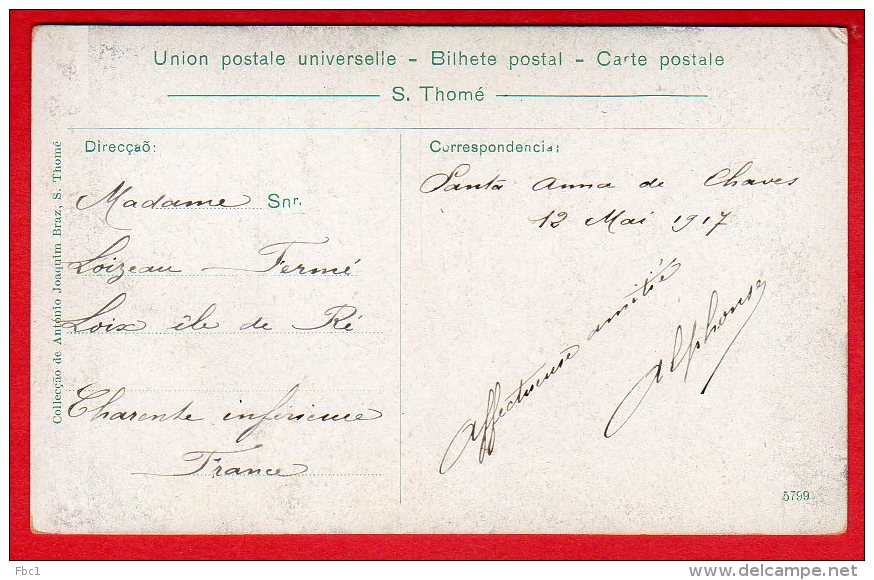 Union postale universelle - Bilhete postal - Carte postale
S. Thomé
Direcçaõ:
Madame Snr.
Loizeau - Fermé
Loix île de Ré
Charente inférieure
France
Correspondencia:
Santa Anna de Chaves
12 Mai 1917
Affectueuse amitié
Alphonse
Collecção de António Joaquim Braz, S. Thomé
5799
Fbc1
www.delcampe.net